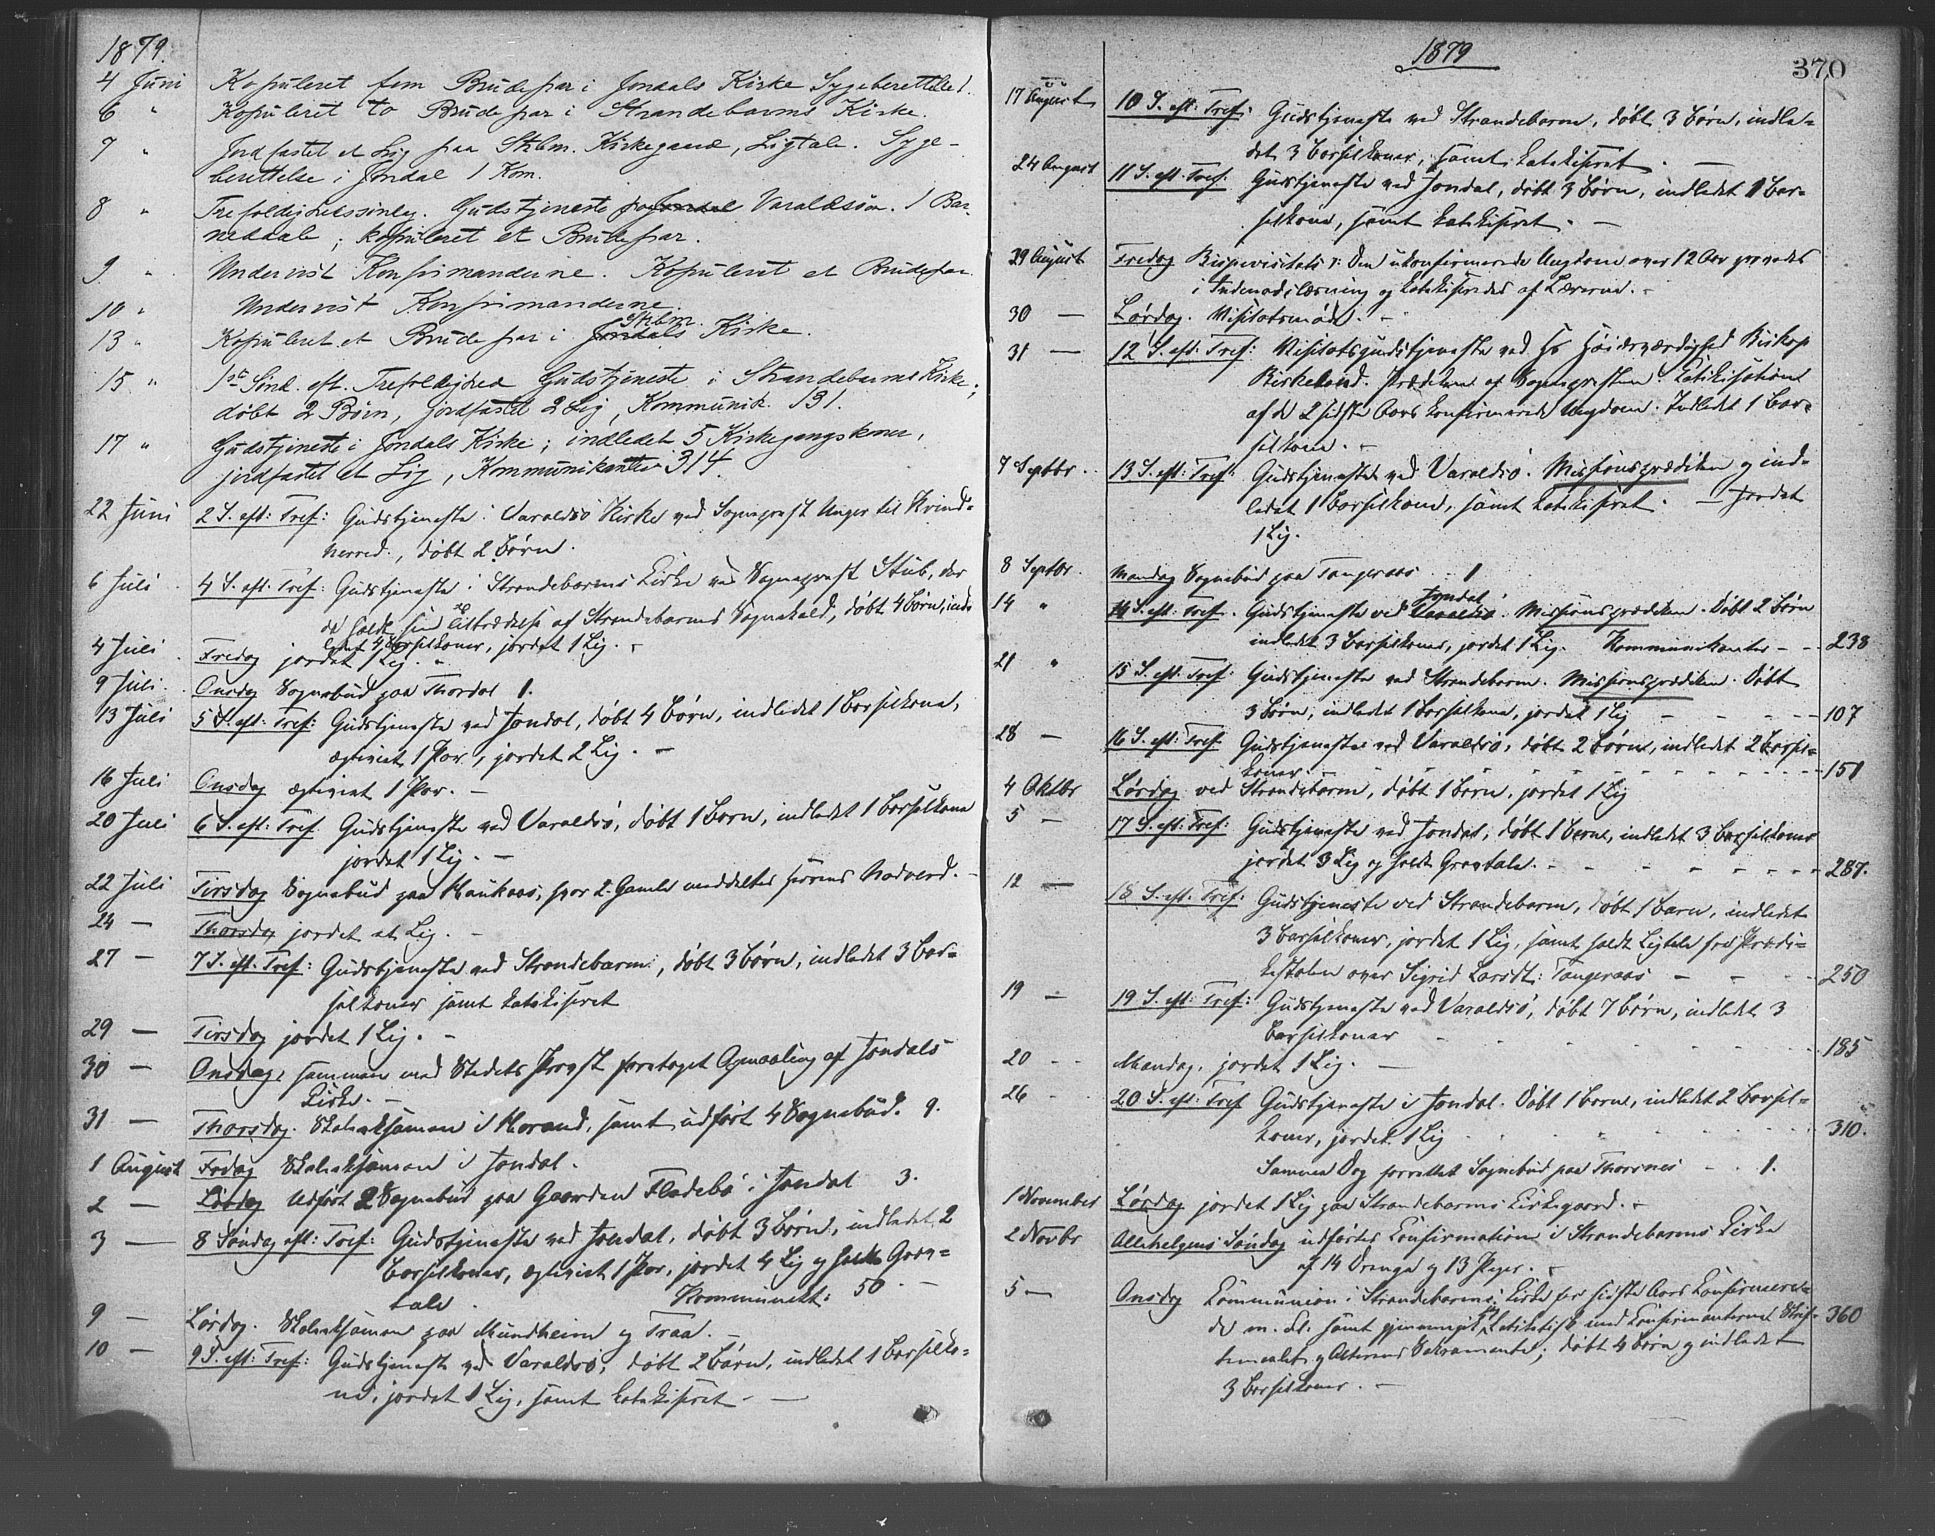 1879.
4 Juni Kopuleret fem Brudepar i Jondals Kirke Sygeberettelse 1.
6 " Kopuleret to Brudepar i Strandebarms Kirke.
7 " Jordfæstet et Lig paa Stbm. Kirkegaard, Ligtale. Syge-
berettelse i Jondal 1 Kom.
8 " Trefoldighedssøndag. Gudstjeneste Varaldsöen. 1 Bar-
nedaab; kopuleret et Brudepar.
9. " Undervist Konfirmanderne. Kopuleret et Brudepar.
10 " Undervist Konfirmanderne.
13 " Kopuleret et Brudepar i Jondals Stbm. Kirke.
15 " 1ste Sönd. eft. Trefoldighed Gudstjeneste i Strandebarms Kirke;
døbt 2 Börn, jordfæstet 2 Lig, Kommunik. 131.
17 " Gudstjeneste i Jondals Kirke; indledet 5 Kirkegangskoner,
jordfæstet et Lig, Kommunikanter 314.
22 Juni 2 S. eft: Tref: Gudstjeneste i Varaldsö Kirke ved Sognepræst Unger til Kvind-
herred., döbt 2 Börn.
6 Juli 4 S. eft: Tref: Gudstjeneste i Strandebarms Kirke ved Sognepræst Stub, der
holdt sin Tiltrædelse af Strandebarms Sognekald, döbt 4 Börn, ind-
ledet 4 Barselkoner, jordet 1 Lig.
4 Juli Fredag jordet 1 Lig.
9 Juli. Onsdag Sognebud paa Thordal 1.
13 Juli 5 S. eft: Tref: Gudstjeneste ved Jondal, döbt 4 Börn, indledet 1 Barselkone,
ægteviet 1 Par, jordet 2 Lig. -
16 Juli Onsdag ægteviet 1 Par. -
20 Juli 6 S. eft: Tref. Gudstjeneste ved Varaldsö, döbt 1 Barn, indledet 1 Barselkone
jordet 1 Lig. -
22 Juli Tirsdag Sognebud paa Haukaas, hvor 2 Gamle meddeltes Herrens Nadverd. -
24 - Thorsdag jordet et Lig. -
27 - 7 S. eft. Tref: Gudstjeneste ved Strandebarm, döbt 3 börn, indledet 3 Bar-
selkoner samt katekiseret
29 - Tirsdag jordet 1 Lig. -
30 - Onsdag, sammen med Stedets Provst foretaget Opmaaling af Jondals
Kirke. -
31 - Thorsdag. Skoleeksamen i Herand, samt udfört 4 Sognebud. 9.
1 August Fredag Skoleeksamen i Jondal.
2 - Lördag Udfört 2 Sognebud paa Gaarden Fladebö i Jondal 3.
3 - 8 Söndag eft: Tref: Gudstjeneste ved Jondal, döbt 3 Börn, indledet 2
barselkoner, ægteviet 1 Par, jordet 4 Lig og holdt Grav-
tale. Kommunikt: 50. -
9 - Lördag. Skoleeksamen paa Mundheim og Traa. -
10 - 9 S. eft: Tref: Gudstjeneste ved Varaldsö, döbt 2 Börn, indledet 1 Barselko-
ne, jordet 1 Lig, samt katekiseret -
1879
370
17 August 10 S. eft: Tref: Gudstjeneste ved Strandebarm, döbt 3 börn, indle-
det 3 barselkoner, samt katekiseret
24 August 11 S. eft. Tref: Gudstjeneste ved Jondal, döbt 3 Börn, indledet 1 Bar-
selkone, samt katekiseret. -
29 August Fredag Bispevisitats: Den ukonfirmerede Ungdom over 12 Aar prøvedes
i Indenadslæsning og katekiseredes af Lærerne. -
30 - Lördag. Visitatsmöde. -
31 - 12 S. eft: Tref: Visitatsgudstjeneste ved Hs Höiærværdighed Biskop
Birkeland. Prædiken af Sognepræsten. Katekisation
af de 2 sidste Aars konfirmerede Ungdom. Indledet 1 Bar-
selkone. -
7 Septbr. 13 S. eft: Tref: Gudstjeneste ved Varaldsö. Missionsprædiken og ind-
ledet 1 barselkone, samt katekiseret. - Jordet
1 Lig.
8 Septbr. Mandag Sognebud paa Tangeraas 1
14 " 14 S. eft. Tref. Gudstjeneste ved Varaldsö Jondal. Missionsprædiken. Döbt 2 Börn
indledet 3 Barselkoner, jordet 1 Lig. Kommunikanter - - 238
21 " 15 S. eft. Tref: Gudstjeneste ved Strandebarm. Missionsprædiken. Döbt
3 Börn, indledet 1 barselkone, jordet 1 Lig - - - 107
28 - 16 S. eft: Tref. Gudstjeneste ved Varaldsö, döbt 2 Börn, indledet 2 Barsel-
koner. - 151
4 Oktbr Lördag ved Strandebarm, döbt 1 Barn, jordet 1 Lig
5 - 17 S. eft: Tref: Gudstjeneste ved Jondal, döbt 1 Barn, indledet 3 barselkoner
jordet 3 Lig og holdt Gravtale. - 287.
12 - 18 S. eft: Tref: Gudstjeneste ved Strandebarm, döbt 1 Barn, indledet
3 barselkoner, jordet 1 Lig, samt holdt Ligtale fra Prædi-
kestolen over Sigrid Larsdt: Tangeraas - - 250
19 - 19 S. eft: Tref: Gudstjeneste ved Varaldsö, döbt 7 Börn, indledet 3
Barselkoner 185
20 - Mandag, jordet 1 Lig. -
26 - 20 S. eft: Tref Gudstjeneste i Jondal. Döbt 1 Barn, indledet 2 Barsel-
koner, jordet 1 Lig 310.
Samme Dag forrettet Sognebud paa Thorsnes - 1.
1 November Lördag jordet 1 Lig paa Strandebarms Kirkegaard. -
2 Novbr Allehelgens Söndag udförtes Konfirmation i Strandebarms Kirke
af 14 Drenge og 13 Piger. -
5 - Onsdag Kommunion i Strandebarms Kirke for sidste Aars Konfirmere-
de m. fl. samt gjennemgik Kateketisk med Konfirmanterne Skrif- 360
temaalet og Alterens Sakramente; döbt 4 Börn og indledet
3 Barselkoner. -